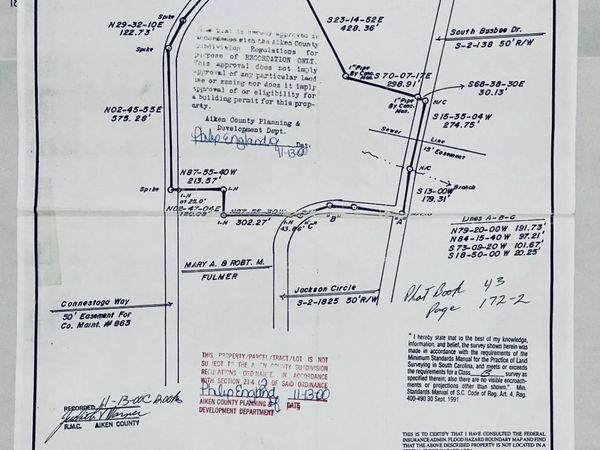 18
N29-32-10E
122.73'
Spike
Spike
S23-14-52E
428.36'
South Busbee Dr.
S-2-138 50' R/W
This plat is hereby approved in
accordance with the Aiken County
Subdivision Regulations for
purpose of RECORDATION ONLY.
This approval does not imply
approval of any particular land
use or zoning nor does it imply
approval of or eligibility for
a building permit for this prop-
erty.
Aiken County Planning &
Development Dept.
Philip England
11-13-00
1" Pipe
By Conc.
Mon.
S 70-07-17E
298.91'
S68-38-30E
30.13'
1" Pipe
By Conc.
Mon.
N/C
S15-35-04W
274.75'
N02-45-55E
575.28'
Sewer Line
15' Easement
N/C
Branch
S13-00W
179.31
N87-55-40W
213.57'
Spike
I-N
I-N
N02-47-04E
I-N
302.27'
I-N
43.86'
"C"
"B"
"A"
Lines A-B-C
N79-20-00W 191.73'
N84-15-40W 97.21'
S73-09-20W 101.67'
S18-50-00W 20.25'
MARY A. & ROBT. M.
FULMER
Jackson Circle
S-2-1825 50' R/W
Plat Book 43
Page 172-2
Connestoga Way
50' Easement For
Co. Maint. #863
THIS PROPERTY/PARCEL/TRACT/LOT IS NOT
SUBJECT TO THE AIKEN COUNTY SUBDIVISION
REGULATIONS ORDINANCE, IN ACCORDANCE
WITH SECTION 21-4 OF SAID ORDINANCE
Philip England 11-13-00
AIKEN COUNTY PLANNING &
DEVELOPMENT DEPARTMENT DATE
"I hereby state that to the best of my knowledge,
information, and belief, the survey shown herein was
made in accordance with the requirements of the
Minimum Standards Manual for the Practice of Land
Surveying in South Carolina, and meets or exceeds
the requirements for a Class B survey as
specified therein; also there are no visible encroach-
ments or projections other than shown." Min.
Standards Manual of S.C. Code of Reg. Art. 4,
400-490 30 Sept. 1991
RECORDED 11-13-00
Judith V. Warner
R.M.C. AIKEN COUNTY
THIS IS TO CERTIFY THAT I HAVE CONSULTED THE FEDERAL
INSURANCE ADMIN. FLOOD HAZARD BOUNDARY MAP AND FIND
THAT THE ABOVE DESCRIBED PROPERTY IS NOT LOCATED IN A